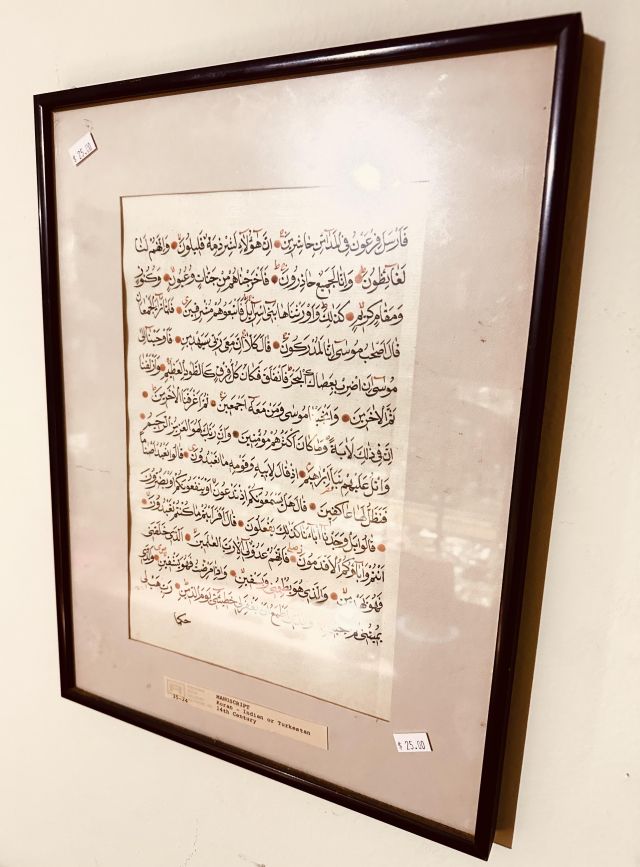 $25.00
فَأَرْسَلَ فِرْعَوْنُ فِي الْمَدَائِنِ حَاشِرِينَ إِنَّ هَؤُلَاءِ لَشِرْذِمَةٌ قَلِيلُونَ وَإِنَّهُمْ لَنَا
لَغَائِظُونَ وَإِنَّا لَجَمِيعٌ حَاذِرُونَ فَأَخْرَجْنَاهُمْ مِنْ جَنَّاتٍ وَعُيُونٍ وَكُنُوزٍ
وَمَقَامٍ كَرِيمٍ كَذَلِكَ وَأَوْرَثْنَاهَا بَنِي إِسْرَائِيلَ فَأَتْبَعُوهُمْ مُشْرِقِينَ فَلَمَّا تَرَاءَ الْجَمْعَانِ
قَالَ أَصْحَابُ مُوسَى إِنَّا لَمُدْرَكُونَ قَالَ كَلَّا إِنَّ مَعِيَ رَبِّي سَيَهْدِينِ فَأَوْحَيْنَا إِلَى
مُوسَى أَنِ اضْرِبْ بِعَصَاكَ الْبَحْرَ فَانْفَلَقَ فَكَانَ كُلُّ فِرْقٍ كَالطَّوْدِ الْعَظِيمِ وَأَزْلَفْنَا
ثَمَّ الْآخَرِينَ وَأَنْجَيْنَا مُوسَى وَمَنْ مَعَهُ أَجْمَعِينَ ثُمَّ أَغْرَقْنَا الْآخَرِينَ
إِنَّ فِي ذَلِكَ لَآيَةً وَمَا كَانَ أَكْثَرُهُمْ مُؤْمِنِينَ وَإِنَّ رَبَّكَ لَهُوَ الْعَزِيزُ الرَّحِيمُ
وَاتْلُ عَلَيْهِمْ نَبَأَ إِبْرَاهِيمَ إِذْ قَالَ لِأَبِيهِ وَقَوْمِهِ مَا تَعْبُدُونَ قَالُوا نَعْبُدُ أَصْنَامًا
فَنَظَلُّ لَهَا عَاكِفِينَ قَالَ هَلْ يَسْمَعُونَكُمْ إِذْ تَدْعُونَ أَوْ يَنْفَعُونَكُمْ أَوْ يَضُرُّونَ
قَالُوا بَلْ وَجَدْنَا آبَاءَنَا كَذَلِكَ يَفْعَلُونَ قَالَ أَفَرَأَيْتُمْ مَا كُنْتُمْ تَعْبُدُونَ
أَنْتُمْ وَآبَاؤُكُمُ الْأَقْدَمُونَ فَإِنَّهُمْ عَدُوٌّ لِي إِلَّا رَبَّ الْعَالَمِينَ الَّذِي خَلَقَنِي
فَهُوَ يَهْدِينِ وَالَّذِي هُوَ يُطْعِمُنِي وَيَسْقِينِ وَإِذَا مَرِضْتُ فَهُوَ يَشْفِينِ وَالَّذِي
يُمِيتُنِي ثُمَّ يُحْيِينِ خَطِيئَتِي يَوْمَ الدِّينِ رَبِّ هَبْ لِي
حكما
15-24
MANUSCRIPT
Koran - Indian or Turkestan
14th Century
$25.00